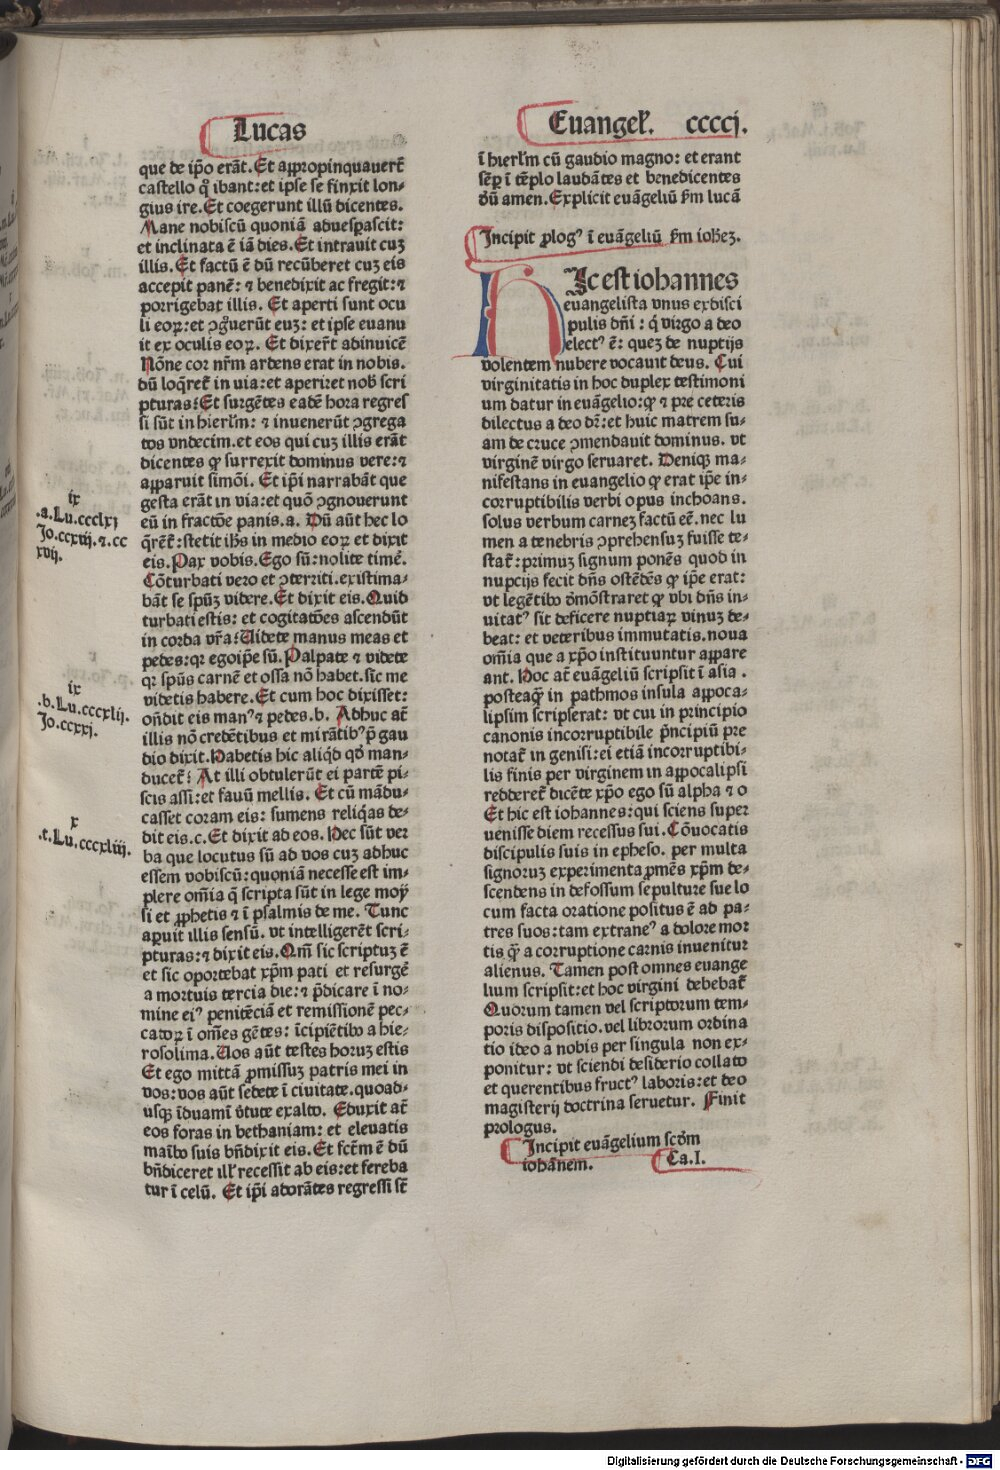 Lucas
que de ip̄o erāt. Et aꝓpropinquauer̄t
castello q̊ ibant: et ipse se finxit lon⸗
gius ire. Et coegerunt illū dicentes.
Mane nobiscū quoniā aduesꝑascit:
et inclinata ē iā dies. Et intrauit cuꝫ
illis. Et factū ē dū recūberet cuꝫ eis
accepit panē: ⁊ benedixit ac fregit: ⁊
porrigebat illis. Et aperti sunt ocu
li eoꝝ: et ꝯg̊uerūt euꝫ: et ipse euanu
it ex oculis eoꝝ. Et dixer̄t adinuicē
Nōne cor nr̄m ardens erat in nobis.
dū loq̄ret᷑ in uia: et aperiret nob̄ scri
pturas? Et surgētes eadē hora regres
si sūt in hierl̄m: ⁊ inuenerūt ꝯgrega
tos vndecim. et eos qui cuꝫ illis erāt
dicentes ꝙ surrexit dominus vere: ⁊
aꝑparuit simōi. Et ip̄i narrabāt que
gesta erāt in via: et quō ꝯgnouerunt
eū in fractōe panis. a. Dū aūt hec lo
q̄ret᷑: stetit ih̄s in medio eoꝝ et dixit
eis. Pax vobis. Ego sū: nolite timē.
Cōturbati vero et ꝯterriti. existima⸗
bāt se spūꝫ videre. Et dixit eis. Quid
turbati estis: et cogitatōes ascendūt
in corda vr̄a? Uidete manus meas et
pedes: qꝛ ego ip̄e sū. Palpate ⁊ videte
qꝛ spūs carnē et ossa nō habet. sic me
videtis habere. Et cum hoc dixisset:
on̄dit eis manꝰ ⁊ pedes. b. Adhuc at̄
illis nō credētibus et mirātibꝰ p̄ gau
dio dixit. Habetis hic aliq̇d qd̓ man⸗
ducet᷑? At illi obtulerūt ei partē pi⸗
scis assi: et fauū mellis. Et cū mādu⸗
casset coram eis: sumens reliq̇as de⸗
dit eis. c. Et dixit ad eos. Hec sūt ver
ba que locutus sū ad vos cuꝫ adhuc
essem vobiscū: quoniā necesse est im⸗
plere om̄ia q̄ scripta sūt in lege moy
si et ꝓphetis ⁊ ī psalmis de me. Tunc
aꝑuit illis sensū. vt intelligerēt scri⸗
pturas: ⁊ dixit eis. Qm̄ sic scriptuꝫ ē
et sic oportebat xp̄m pati et resurgē
a mortuis tercia die: ⁊ p̄dicare ī no⸗
mine eiꝰ penitēciā et remissionē pec⸗
catoꝝ ī om̄es gētes: īcipiētibꝰ a hie⸗
rosolima. Uos aūt testes horuꝫ estis
Et ego mittā ꝓmissuꝫ patris mei in
vos: vos aūt sedete ī ciuitate. quoad⸗
usqꝫ īduamī v̓tute ex alto. Eduxit at̄
eos foras in bethaniam: et eleuatis
maībꝰ suis bn̄dixit eis. Et fct̄m ē dū
bn̄diceret illꝭ recessit ab eis: et fereba
tur ī celū. Et ip̄i adorātes regressi st̄
ix
.a. Lu. ccclxj
Jo. ccxvij. ⁊. cc
xvij.
ix
.b. Lu. cccxlij.
Jo. ccxxj.
x
.t. Lu. cccxliiij.
Euangel̄. ccccj.
ī hierl̄m cū gaudio magno: et erant
sēꝑ ī tēplo laudātes et benedicentes
dn̄m amen. Explicit euāgeliū ẜm lucā
Incipit ꝓlogꝰ ī euāgeliū ẜm ioh̄eꝫ.
HIc est iohannes
euangelista vnus ex disci
pulis dn̄i: q̇ virgo a deo
electꝰ ē: queꝫ de nuptijs
volentem nubere vocauit deus. Cui
virginitatis in hoc duplex testimoni
um datur in euāgelio: ꝙ ⁊ pre ceteris
dilectus a deo dr̄: et huic matrem su⸗
am de cruce ꝯmendauit dominus. vt
virginē virgo seruaret. Deniqꝫ ma⸗
nifestans in euangelio ꝙ erat ip̄e in⸗
corruptibilis verbi opus inchoans.
solus verbum carneꝫ factū eē. nec lu
men a tenebris ꝯprehensuꝫ fuisse te⸗
stat᷑: primuꝫ signum ponēs quod in
nupcijs fecit dn̄s ostēdēs ꝙ ip̄e erat:
vt legētibꝰ d̓mōstraret ꝙ vbi dn̄s in⸗
uitatꝰ sit deficere nuptiaꝝ vinuꝫ de⸗
beat: et veteribus immutatis. noua
om̄ia que a xp̄o instituuntur aꝑpare
ant. Hoc at̄ euāgeliū scripsit ī asia.
posteaq̄ in pathmos insula aꝑpoca⸗
lipsim scripserat: vt cui in principio
canonis incorruptibile p̄ncipiū pre
notat᷑ in genesi: ei etiā incorruptibi⸗
lis finis per virginem in aꝑpocalipsi
redderet᷑ dicēte xp̄o ego sū alpha ⁊ o
Et hic est iohannes: qui sciens super
uenisse diem recessus sui. Cōuocatis
discipulis suis in epheso. per multa
signoruꝫ experimenta ꝓmēs xp̄m de⸗
scendens in defossum sepulture sue lo
cum facta oratione positus ē ad pa⸗
tres suos: tam extraneꝰ a dolore mor
tis q̄ a corruptione carnis inuenitur
alienus. Tamen post omnes euange
lium scripsit: et hoc virgini debebat᷑
Quorum tamen vel scriptorum tem⸗
poris dispositio. vel librorum ordina
tio ideo a nobis per singula non ex⸗
ponitur: vt sciendi desiderio collato
et querentibus fructꝰ laboris: et deo
magisterij doctrina seruetur. Finit
prologus.
Incipit euāgelium scd̓m
iohānem. Ca. I.
Digitalisierung gefördert durch die Deutsche Forschungsgemeinschaft - DFG